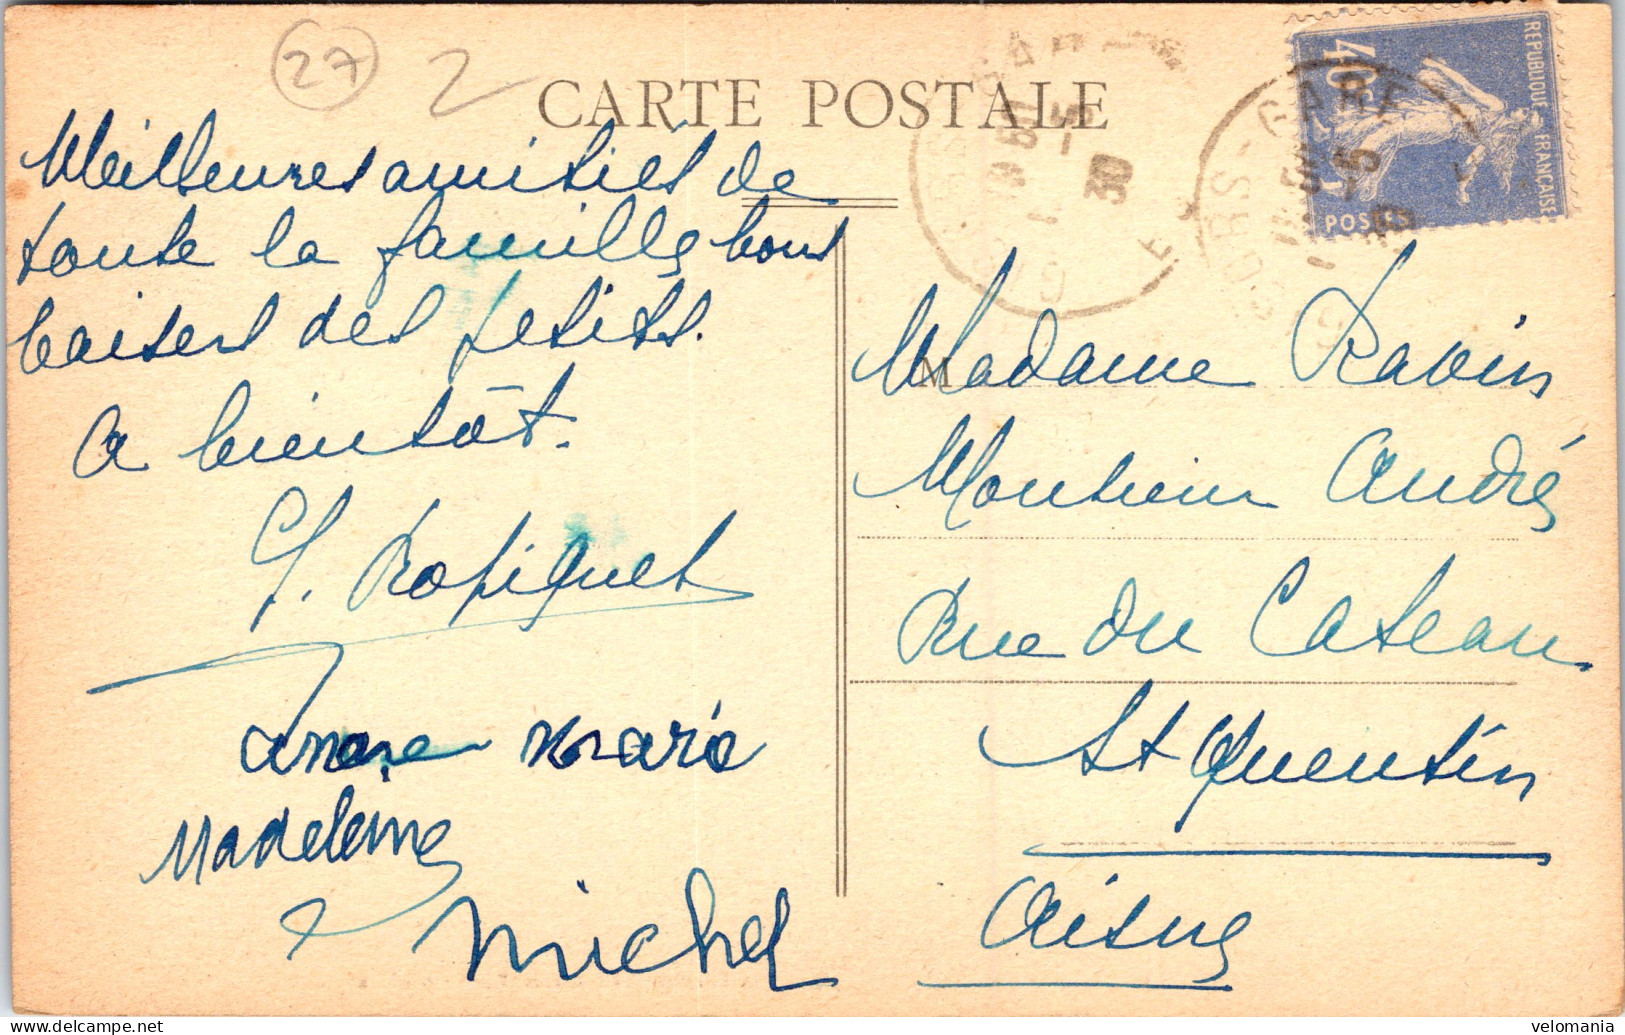 27
2
CARTE POSTALE
Meilleures amitiés de
toute la famille bons
baisers des petits.
A bientôt.
G. Ropiquet
Marie
Madeleine
Michel
REPUBLIQUE FRANÇAISE
40c
POSTES
GARE
30
M
Madame Ravin
Monsieur André
Rue du Cateau
St Quentin
Aisne
velomania